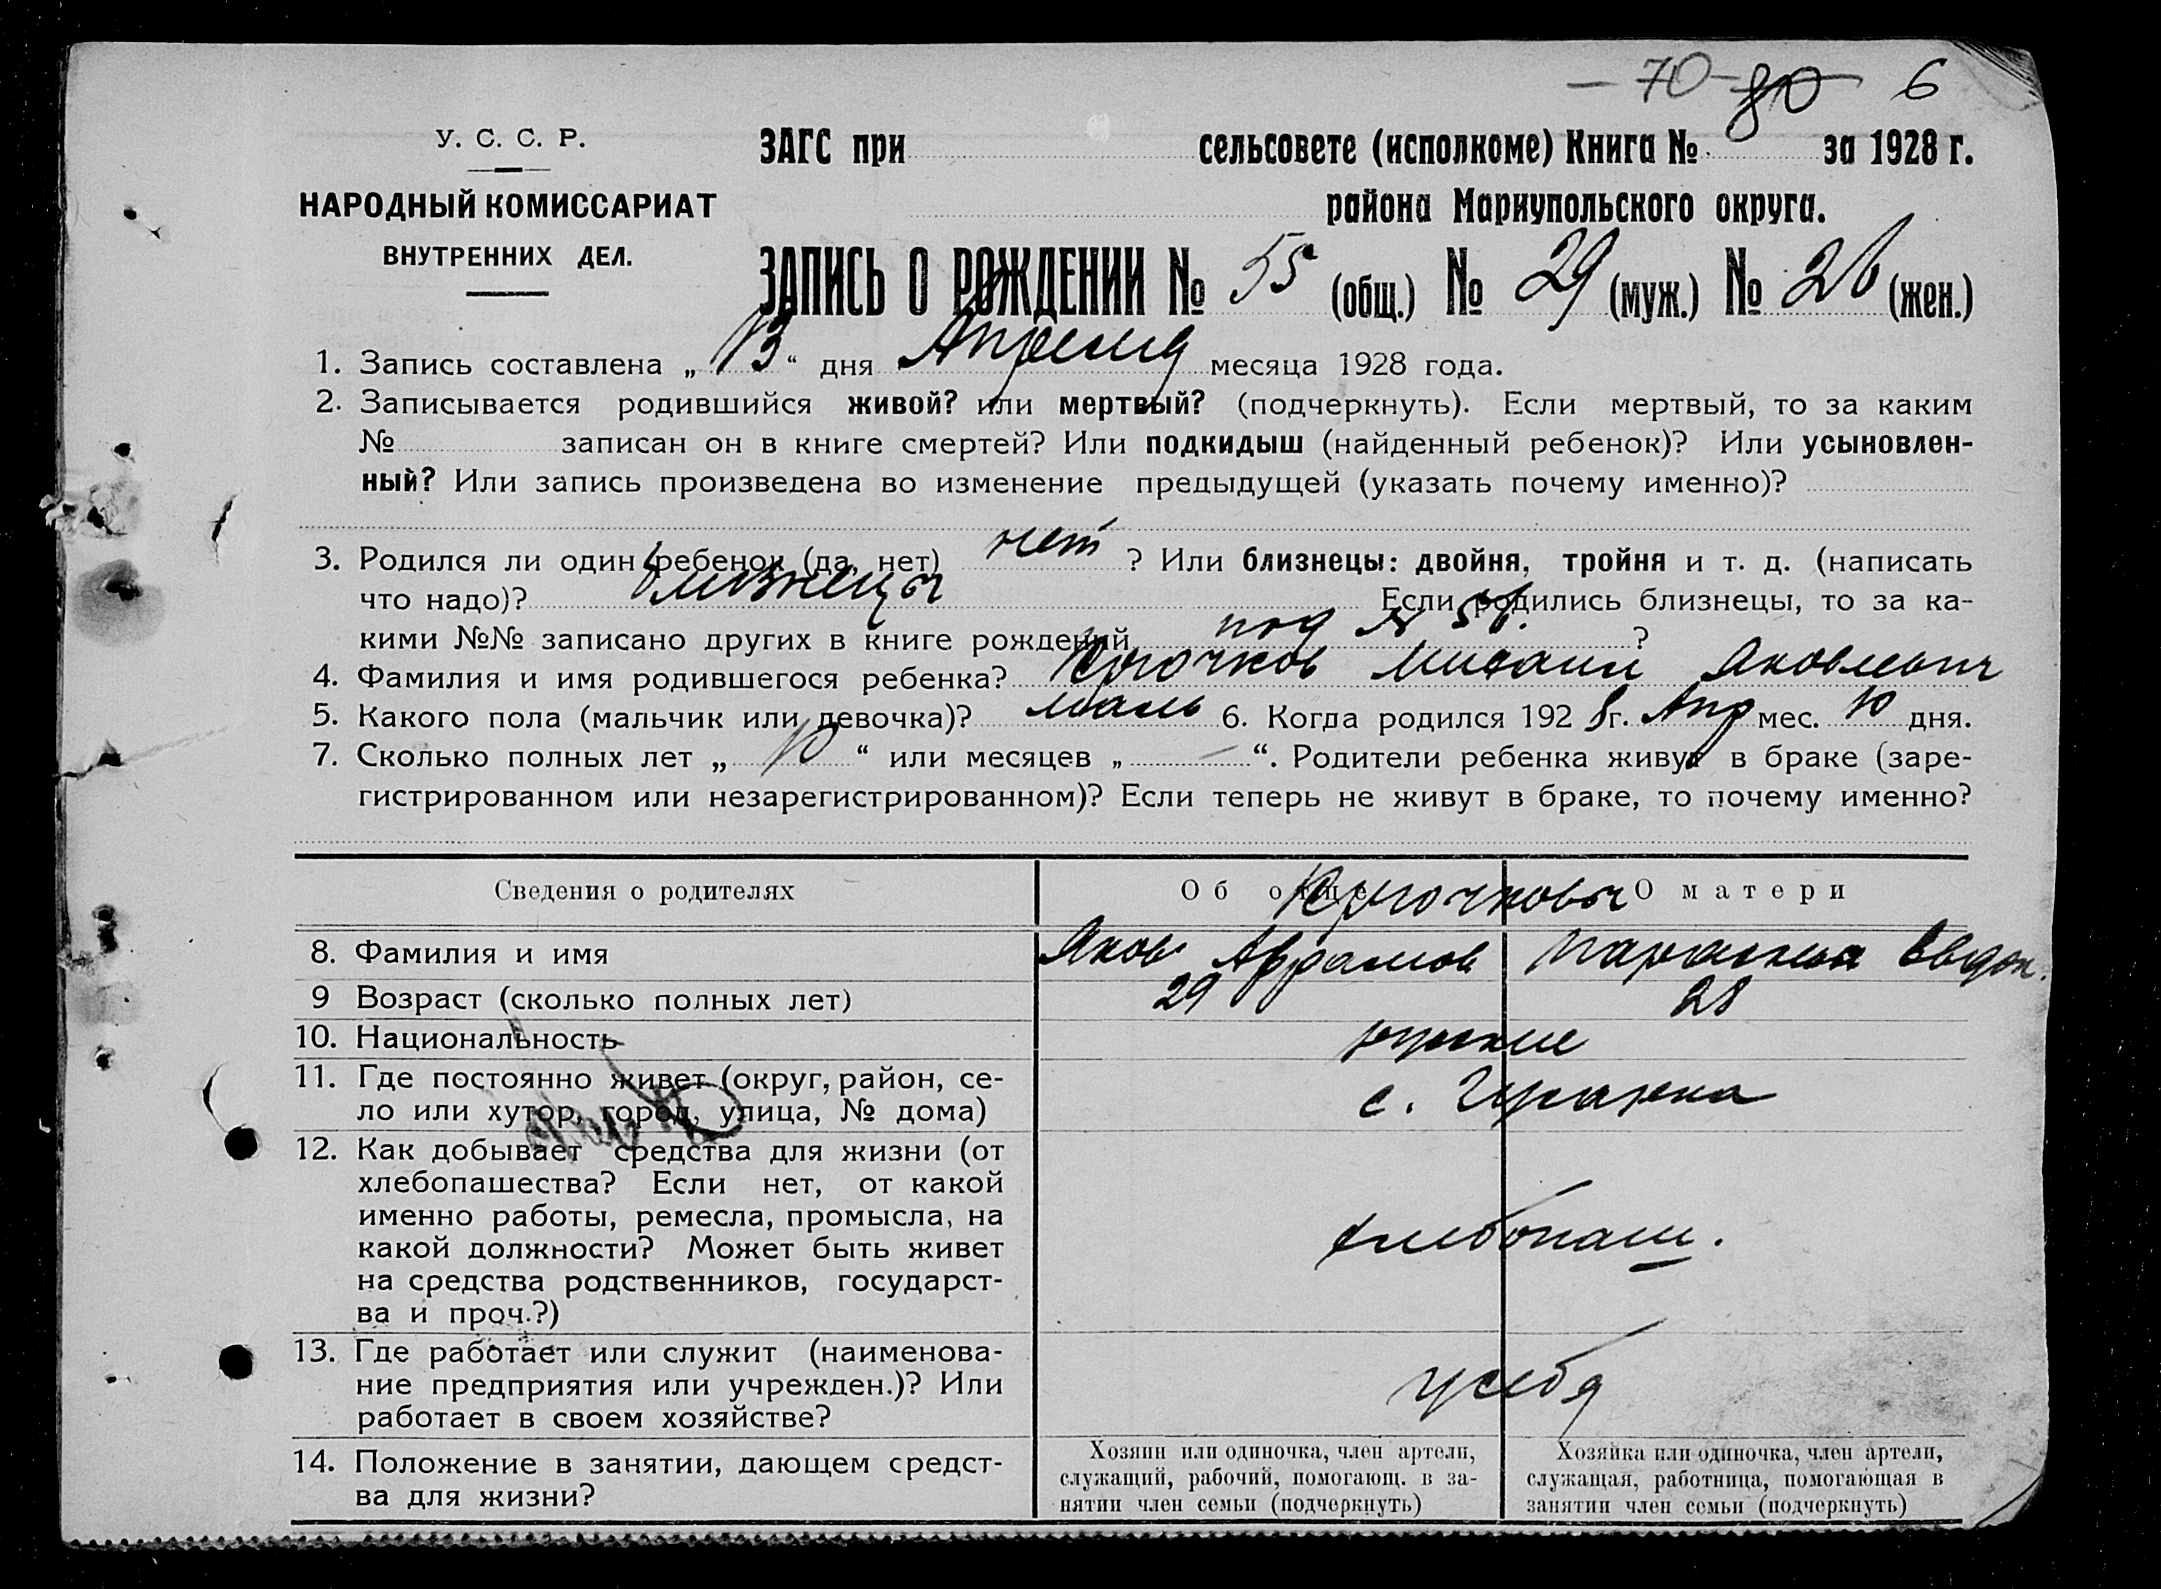 — 70 — 80 6
У. С. С. Р.
ЗАГС при сельсовете (исполкоме) Книга № за 1928 г.
НАРОДНЫЙ КОМИССАРИАТ
района Мариупольского округа.
ВНУТРЕННИХ ДЕЛ.
ЗАПИСЬ О РОЖДЕНИИ № 55 (общ.) № 29 (муж.) № 26 (жен.)
1. Запись составлена „ 13 “ дня Апреля месяца 1928 года.
2. Записывается родившийся живой? или мертвый? (подчеркнуть). Если мертвый, то за каким
№ записан он в книге смертей? Или подкидыш (найденный ребенок)? Или усыновлен-
ный? Или запись произведена во изменение предыдущей (указать почему именно)?
3. Родился ли один ребенок (да, нет) нет ? Или близнецы: двойня, тройня и т. д. (написать
что надо)? близнецы Если родились близнецы, то за ка-
кими №№ записано других в книге рождений под № 56. ?
4. Фамилия и имя родившегося ребенка? Крючков Михаил Яковлевич
5. Какого пола (мальчик или девочка)? маль 6. Когда родился 192 8 г. Апр мес. 10 дня.
7. Сколько полных лет „ 10 “ или месяцев „ — “. Родители ребенка живут в браке (заре-
гистрированном или незарегистрированном)? Если теперь не живут в браке, то почему именно?
Сведения о родителях Об отце О матери
Крючковы
8. Фамилия и имя Яков Аврамов Параскева Евдок.
9 Возраст (сколько полных лет) 29 28
10. Национальность русские
11. Где постоянно живет (округ, район, се-
ло или хутор, город, улица, № дома) с.
12. Как добывает средства для жизни (от
хлебопашества? Если нет, от какой
именно работы, ремесла, промысла, на
какой должности? Может быть живет
на средства родственников, государст-
ва и проч.?)
хлебопаш.
13. Где работает или служит (наименова-
ние предприятия или учрежден.)? Или
работает в своем хозяйстве?
у себя
14. Положение в занятии, дающем средст-
ва для жизни?
Хозяин или одиночка, член артели,
служащий, рабочий, помогающ. в за-
нятии член семьи (подчеркнуть)
Хозяйка или одиночка, член артели,
служащая, работница, помогающая в
занятии член семьи (подчеркнуть)